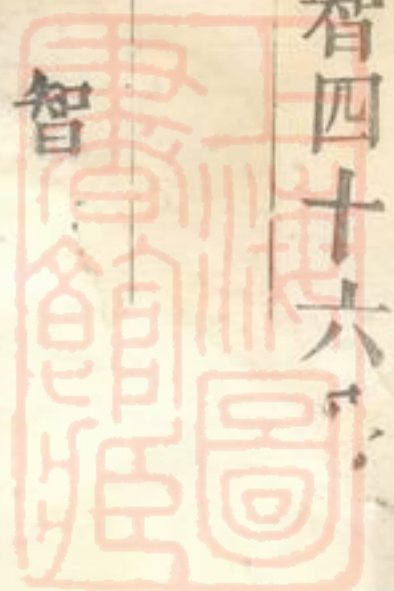 智四十六
智
上海圖
書館藏